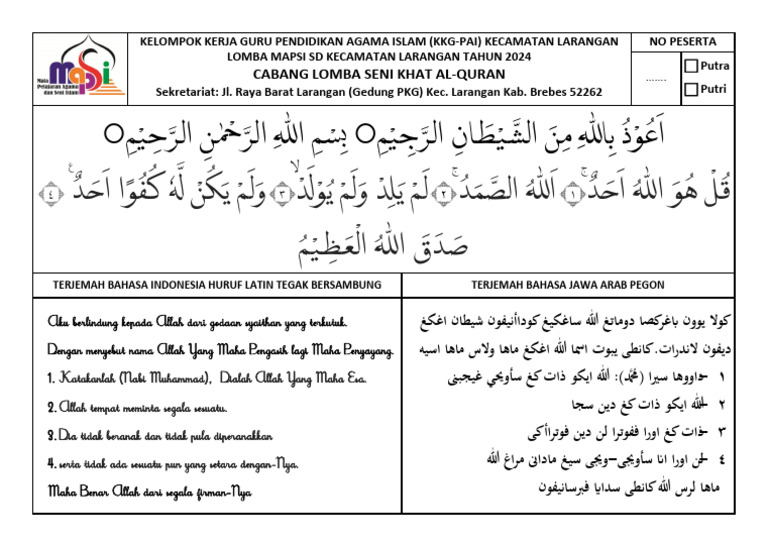 KELOMPOK KERJA GURU PENDIDIKAN AGAMA ISLAM (KKG-PAI) KECAMATAN LARANGAN
LOMBA MAPSI SD KECAMATAN LARANGAN TAHUN 2024
CABANG LOMBA SENI KHAT AL-QURAN
Sekretariat: Jl. Raya Barat Larangan (Gedung PKG) Kec. Larangan Kab. Brebes 52262
mapsi
Mata Pelajaran Agama dan Seni Islam
NO PESERTA
.......
Putra
Putri
اَعُوْذُ بِاللّٰهِ مِنَ الشَّيْطَانِ الرَّجِيْمِ○ بِسْمِ اللّٰهِ الرَّحْمٰنِ الرَّحِيْمِ○
قُلْ هُوَ اللّٰهُ اَحَدٌۚ ١ اَللّٰهُ الصَّمَدُۚ ٢ لَمْ يَلِدْ وَلَمْ يُوْلَدْۙ ٣ وَلَمْ يَكُنْ لَّهٗ كُفُوًا اَحَدٌࣖ ٤
صَدَقَ اللّٰهُ الْعَظِيْمُ
TERJEMAH BAHASA INDONESIA HURUF LATIN TEGAK BERSAMBUNG
Aku berlindung kepada Allah dari godaan syaithan yang terkutuk.
Dengan menyebut nama Allah Yang Maha Pengasih lagi Maha Penyayang.
1. Katakanlah (Nabi Muhammad), Dialah Allah Yang Maha Esa.
2. Allah tempat meminta segala sesuatu.
3. Dia tidak beranak dan tidak pula diperanakkan
4. serta tidak ada sesuatu pun yang setara dengan-Nya.
Maha Benar Allah dari segala firman-Nya
TERJEMAH BAHASA JAWA ARAB PEGON
كولا يوون باغركصا دوماتغ الله ساغكيغ كوداأنيفون شيطان اغكغ
ديفون لاندرات. كانطى يبوت اسما الله اغكغ ماها ولاس ماها اسيه
١ -داووها سيرا (محمّد): الله ايكو ذات كغ سأويجي غيجيني
٢ -الله ايكو ذات كغ دين سجا
٣ -ذات كغ اورا ففوترا لن دين فوتراأكى
٤ -لن اورا انا سأويجى-ويجى سيغ مادانى مراغ الله
ماها لرس الله كانطى سدايا فيرسانيفون